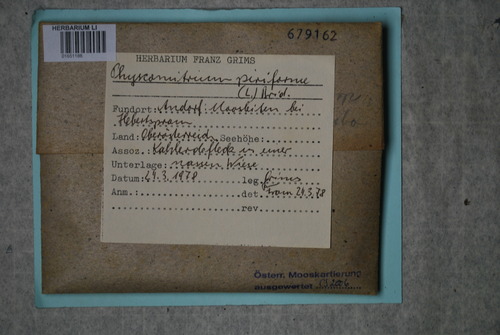 HERBARIUM LI
679162
HERBARIUM FRANZ GRIMS
Physcomitrium piriforme
(L.) Brid.
Fundort: Andorf: Moosleiten bei
Hebertspram
Land: Oberösterreich Seehöhe:
Assoz.: Kahler Erdfleck in einer
Unterlage: nassen Wiese
Datum: 24.3.1978 leg. Grims
Anm.: det. Grims 24.3.78
rev.
Österr. Mooskartierung
ausgewertet